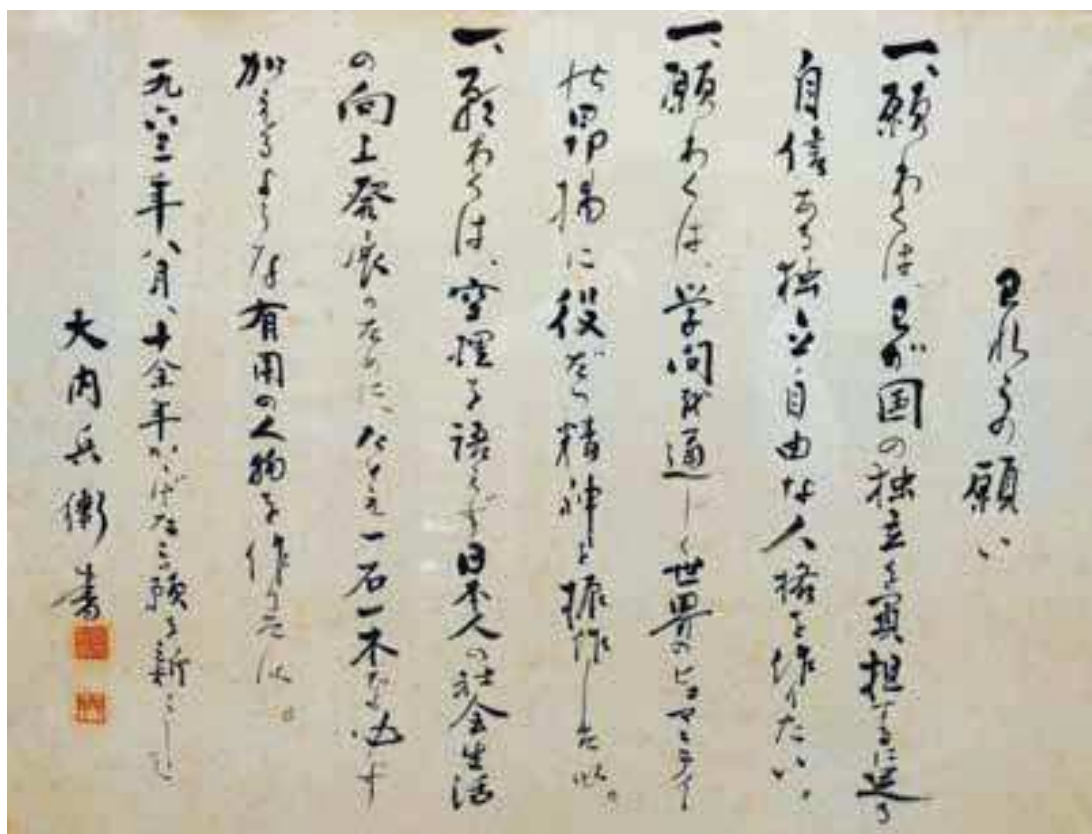 われらの願い
一、願わくは、わが国の独立を負担するに足る
自信ある独立、自由な人格を作りたい。
一、願わくは、学問を通じて世界のヒュマニティ
の昂揚に役だつ精神を振作したい。
一、願わくは、空理を語らず日本人の社会生活
の向上発展のために、たとえ一石一木なりと必ず
加えるような有用の人物を作りたい。
一九六二年八月、十余年かゝげたこの願を新にして
大内兵衛書